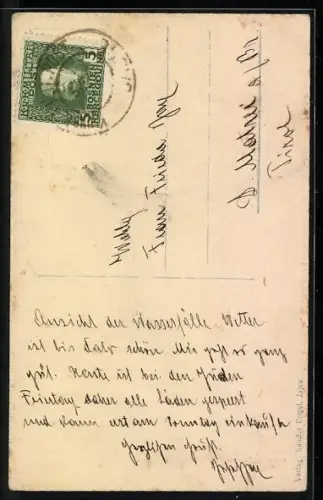 5 5
Wohlg
Frau Frieda
D. Matrei a/Br
Tirol
Ansicht der Wasserfälle, Wetter
ist bis dato schön. Mir geht es ganz
gut. Heute ist bei den Juden
Feiertag daher alle Läden gesperrt
und kann erst am Sonntag einkaufen
Herzlichen Gruß.
Verlag Sandor Engel, Jajce.